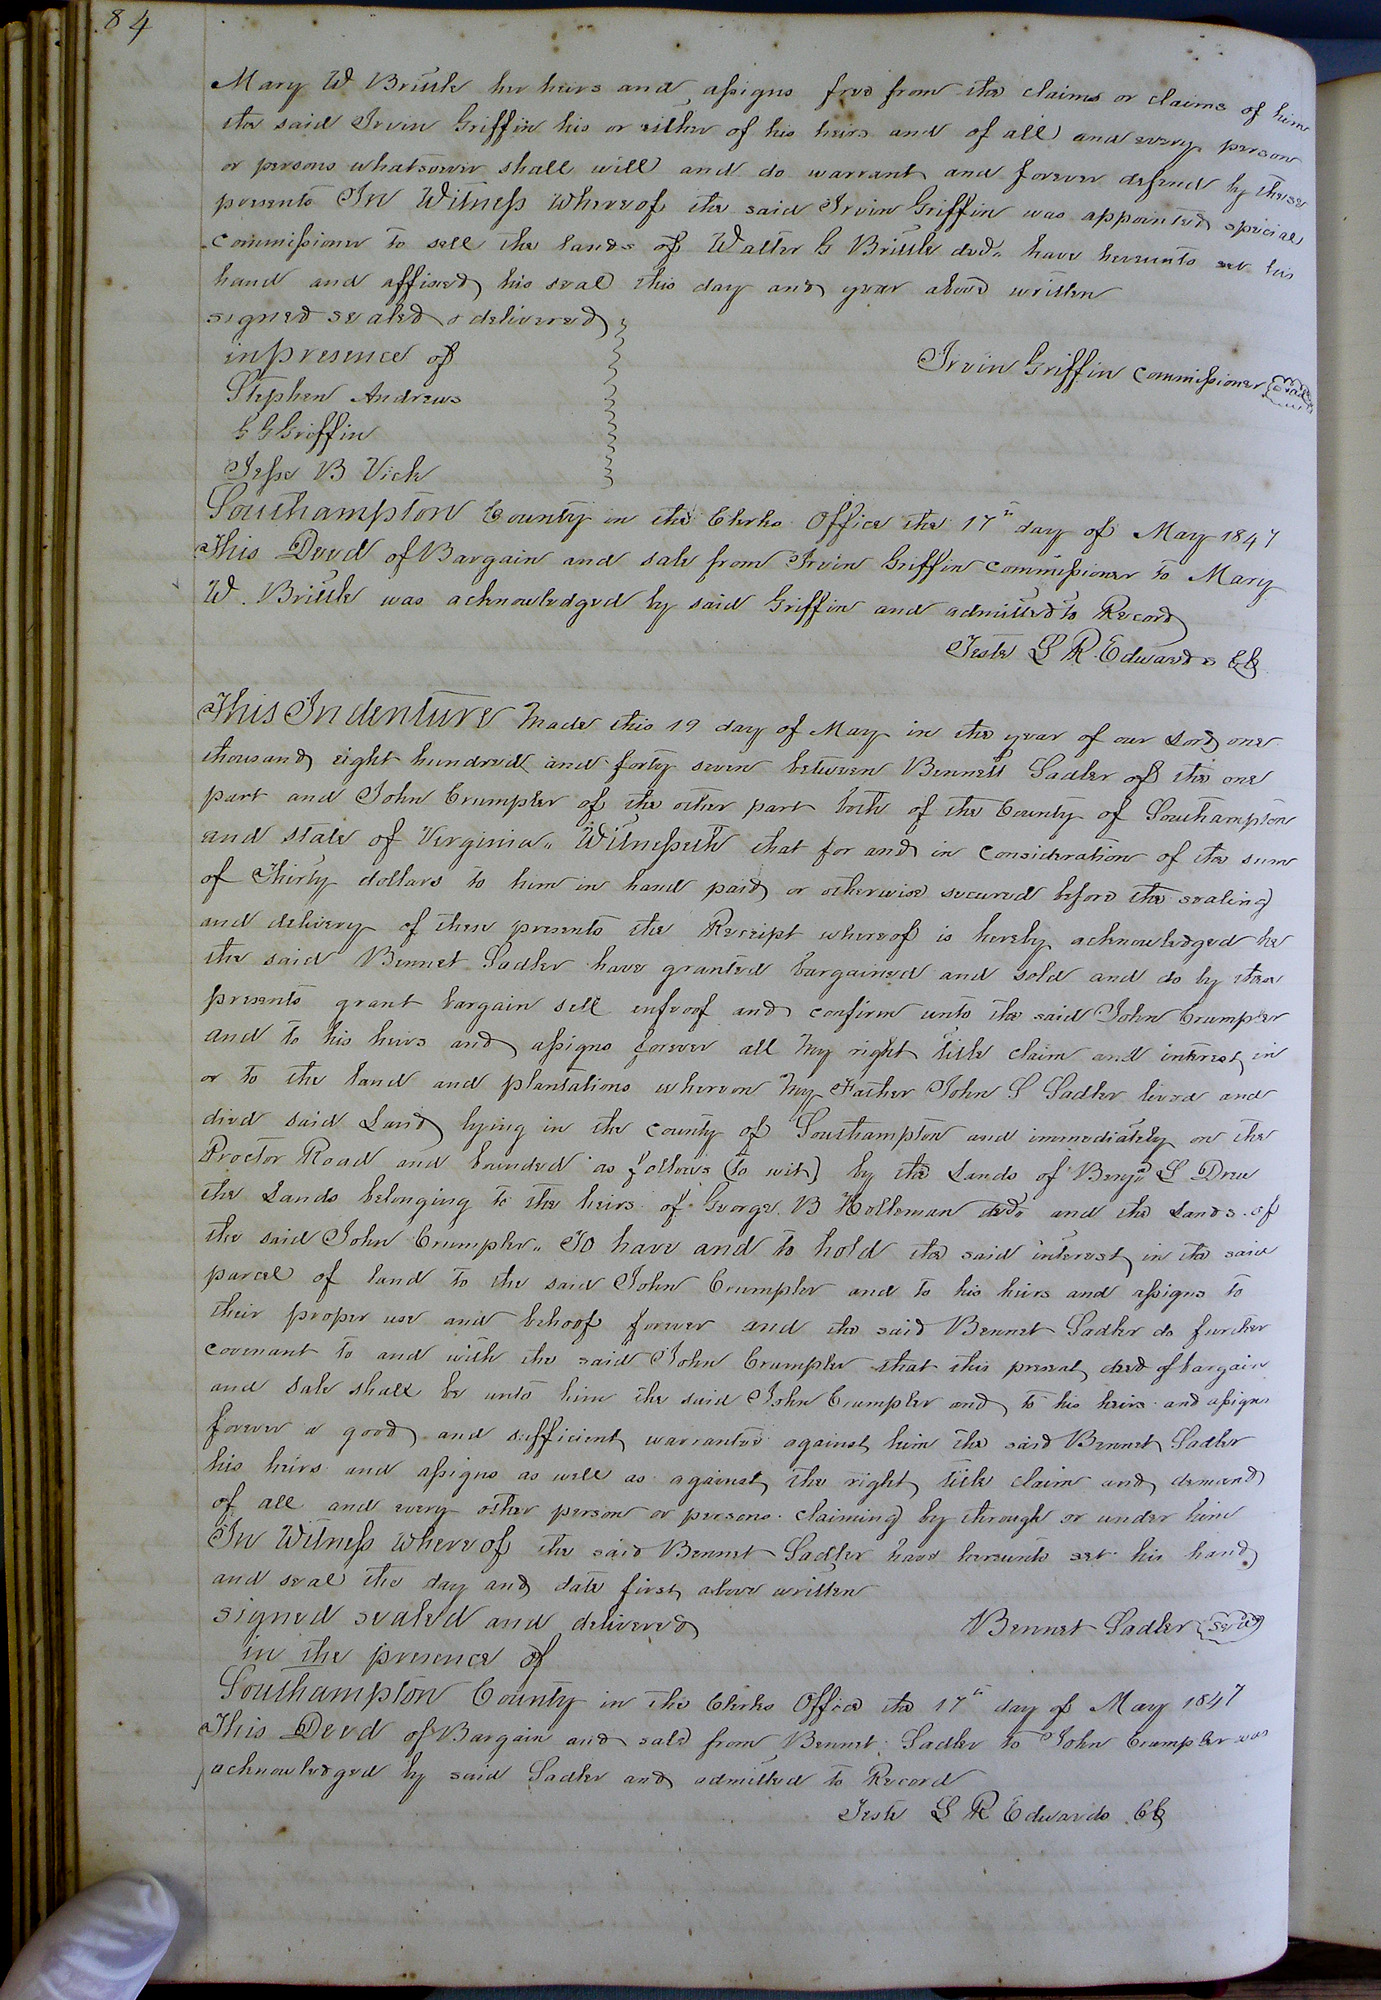 84
Mary W Brittle her heirs and assigns free from the claims or claims of him
the said Irvin Griffin his or either of his heirs and of all and every person
or persons whatsoever shall will and do warrant and forever defend by these
presents In Witness whereof the said Irvin Griffin was appointed special
commissioner to sell the lands of Walter G Brittle decd. have hereunto set his
hand and affixed his seal this day and year above written
signed sealed & delivered
in presence of
Irvin Griffin commissioner seal
Stephen Andrews
G Griffin
Jesse B Vick
Southampton County in the Clerks Office the 17th day of May 1847
This Deed of Bargain and sale from Irvin Griffin commissioner to Mary
W. Brittle was acknowledged by said Griffin and admitted to Record
Teste L R Edwards CC
This Indenture Made this 19 day of May in the year of our Lord one
thousand eight hundred and forty seven between Bennett Sadler of the one
part and John Crumpler of the other part both of the County of Southampton
and state of Virginia. Witnesseth that for and in consideration of the sum
of Thirty dollars to him in hand paid or otherwise secured before the sealing
and delivery of these presents the Receipt whereof is hereby acknowledged he
the said Bennet Sadler have granted bargained and sold and do by these
presents grant bargain sell infeoof and confirm unto the said John Crumpler
and to his heirs and assigns forever all My right title claim and interest in
or to the land and plantations whereon My Father John S Sadler lived and
died said Land lying in the county of Southampton and immediately on the
Proctor Road and bounded as follows (to wit) by the Lands of Benjn S Drew
the Lands belonging to the heirs of George B Holleman decd. and the Lands of
the said John Crumpler. To have and to hold the said interest in the said
parcel of land to the said John Crumpler and to his heirs and assigns to
their proper use and behoof forever and the said Bennet Sadler do further
covenant to and with the said John Crumpler that this present deed of bargain
and sale shall be unto him the said John Crumpler and to his heirs and assigns
forever a good and sufficient warrantee against him the said Bennet Sadler
his heirs and assigns as well as against the right title claim and demand
of all and every other person or persons claiming by through or under him
In Witness whereof the said Bennet Sadler have hereunto set his hand
and seal the day and date first above written
signed sealed and delivered
Bennet Sadler seal
in the presence of
Southampton County in the Clerks Office the 17th day of May 1847
This Deed of Bargain and sale from Bennet Sadler to John Crumpler was
acknowledged by said Sadler and admitted to Record
Teste L R Edwards CC